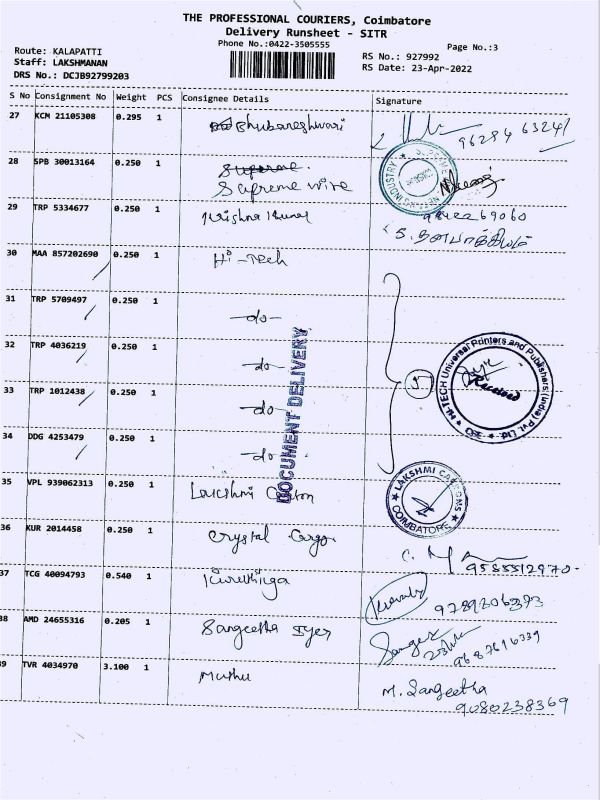 THE PROFESSIONAL COURIERS, Coimbatore
Delivery Runsheet - SITR
Phone No.:0422-3505555
Page No.:3
Route: KALAPATTI
Staff: LAKSHMANAN
DRS No.: DCJB92799203
RS No.: 927992
RS Date: 23-Apr-2022
S No Consignment No Weight PCS Consignee Details Signature
27 KCM 21105308 0.295 1 Bhubaneshwari
28 SPB 30013164 0.250 1 Supreme
Supreme wire
29 TRP 5334677 0.250 1 Krishna Kumar
30 MAA 857202690 0.250 1 Hi-Tech
31 TRP 5709497 0.250 1 -do-
32 TRP 4036219 0.250 1 -do-
33 TRP 1012438 0.250 1 -do-
34 DDG 4253479 0.250 1 -do-
5
HI.TECH Universal Printers and Publishers (India) Pvt. Ltd. CBE
Received
DOCUMENT DELIVERY
35 VPL 939062313 0.250 1 Lakshmi Carton
LAKSHMI CARTONS
COIMBATORE
36 KUR 2014458 0.250 1 Crystal Cargo
37 TCG 40094793 0.540 1
9789206373
38 AMD 24655316 0.205 1 Sangeetha Iyer
9687616339
39 TVR 4034970 3.100 1 Muthu
M. Sangeetha
9080238369